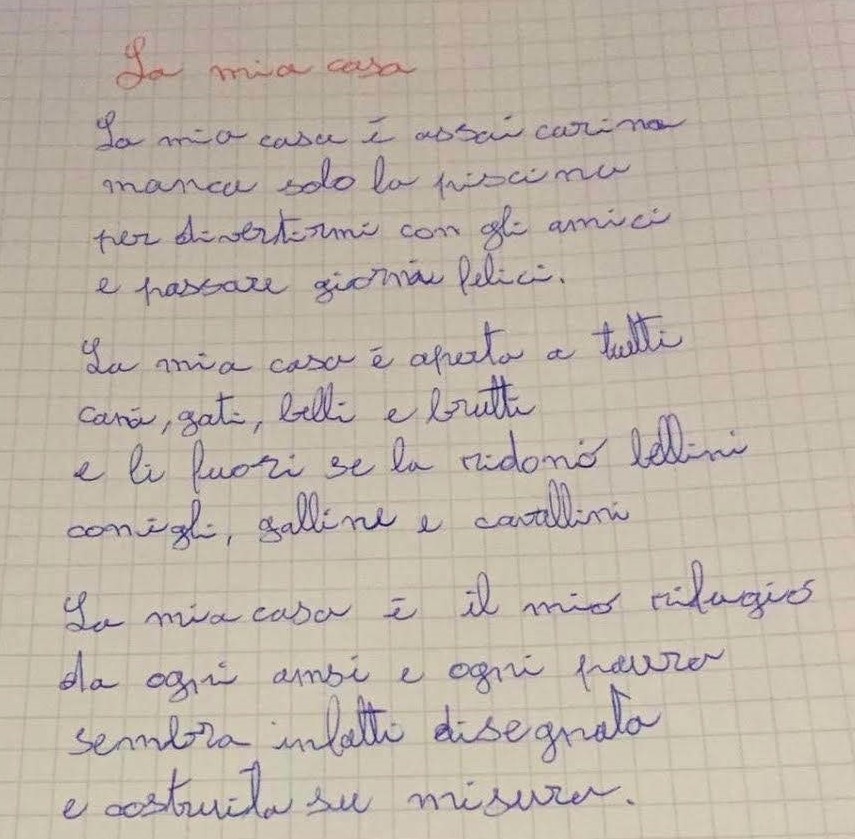 La mia casa
La mia casa è assai carina
manca solo la piscina
per divertirmi con gli amici
e passare giornàe felici.
La mia casa è aperta a tutti
cani, gati, belli e brutti
e li fuori se la ridono bellini
conigli, galline e cavallini
La mia casa è il mio rifugio
da ogni ansi e ogni paura
sembra infatti disegnata
e costruita su misura.